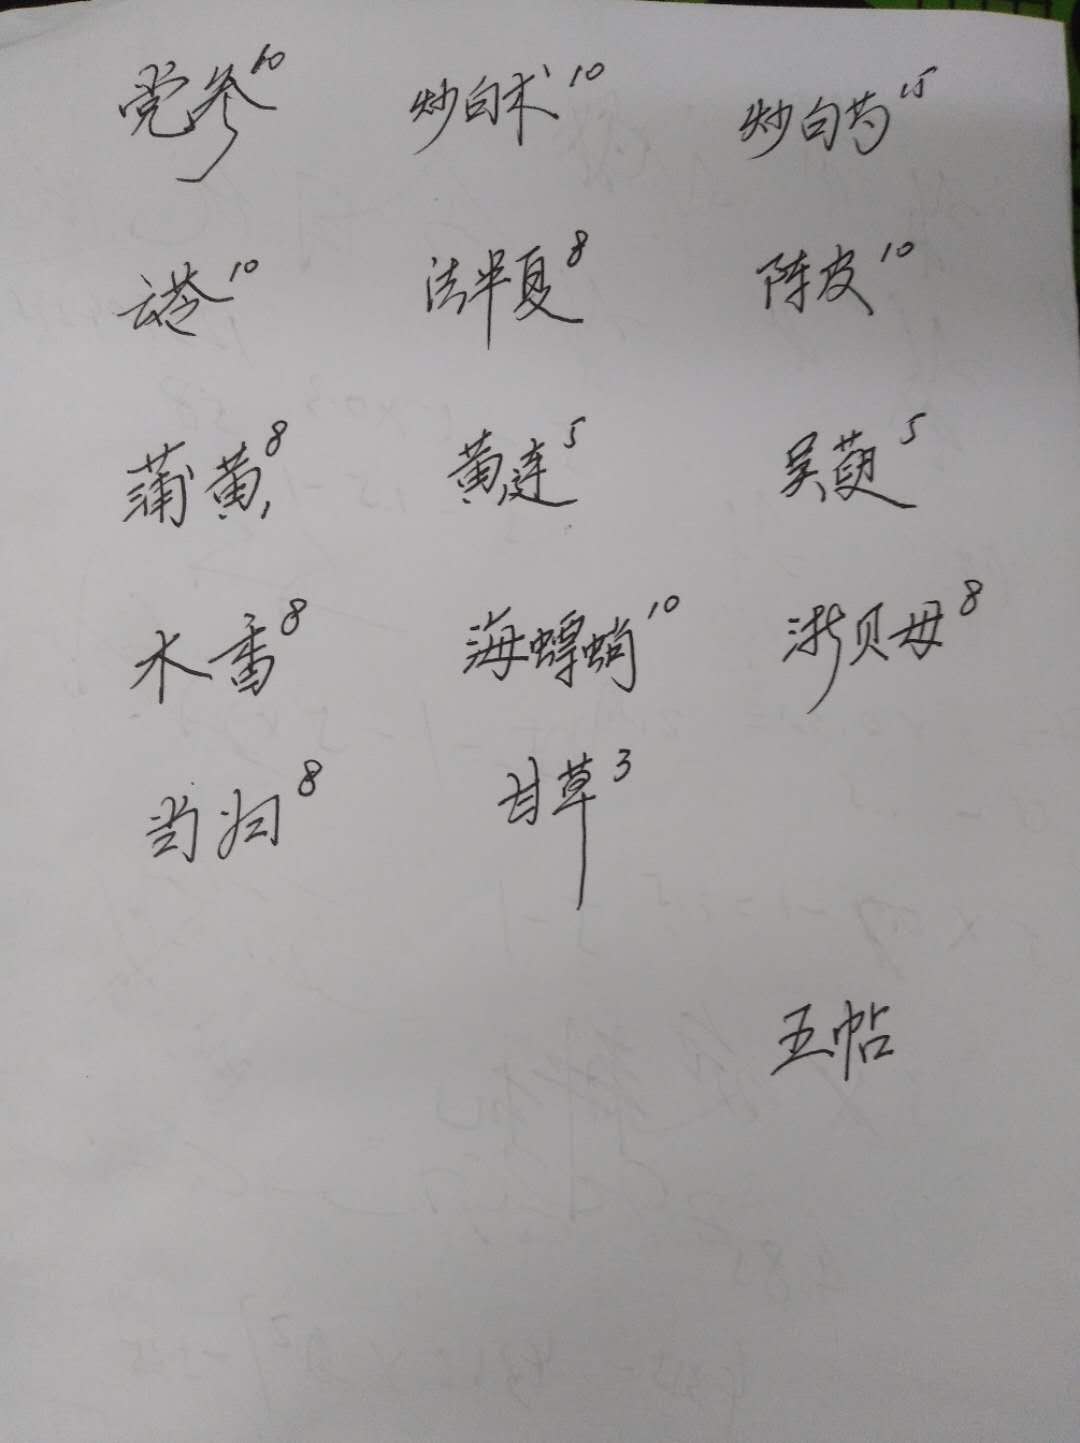 党参10 炒白术10 炒白芍15
云苓10 法半夏8 陈皮10
蒲黄8 黄连5 吴萸5
木香8 海螵蛸10 浙贝母8
当归8 甘草3
五帖